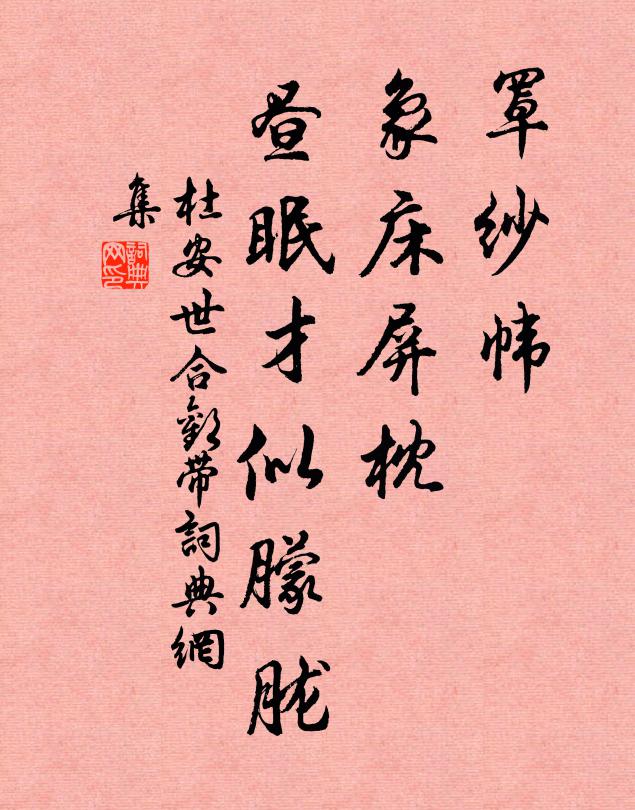 罩纱帏
象床屏枕
昼眠才似朦胧
杜安世合歡带詞典網
集
詞典网印